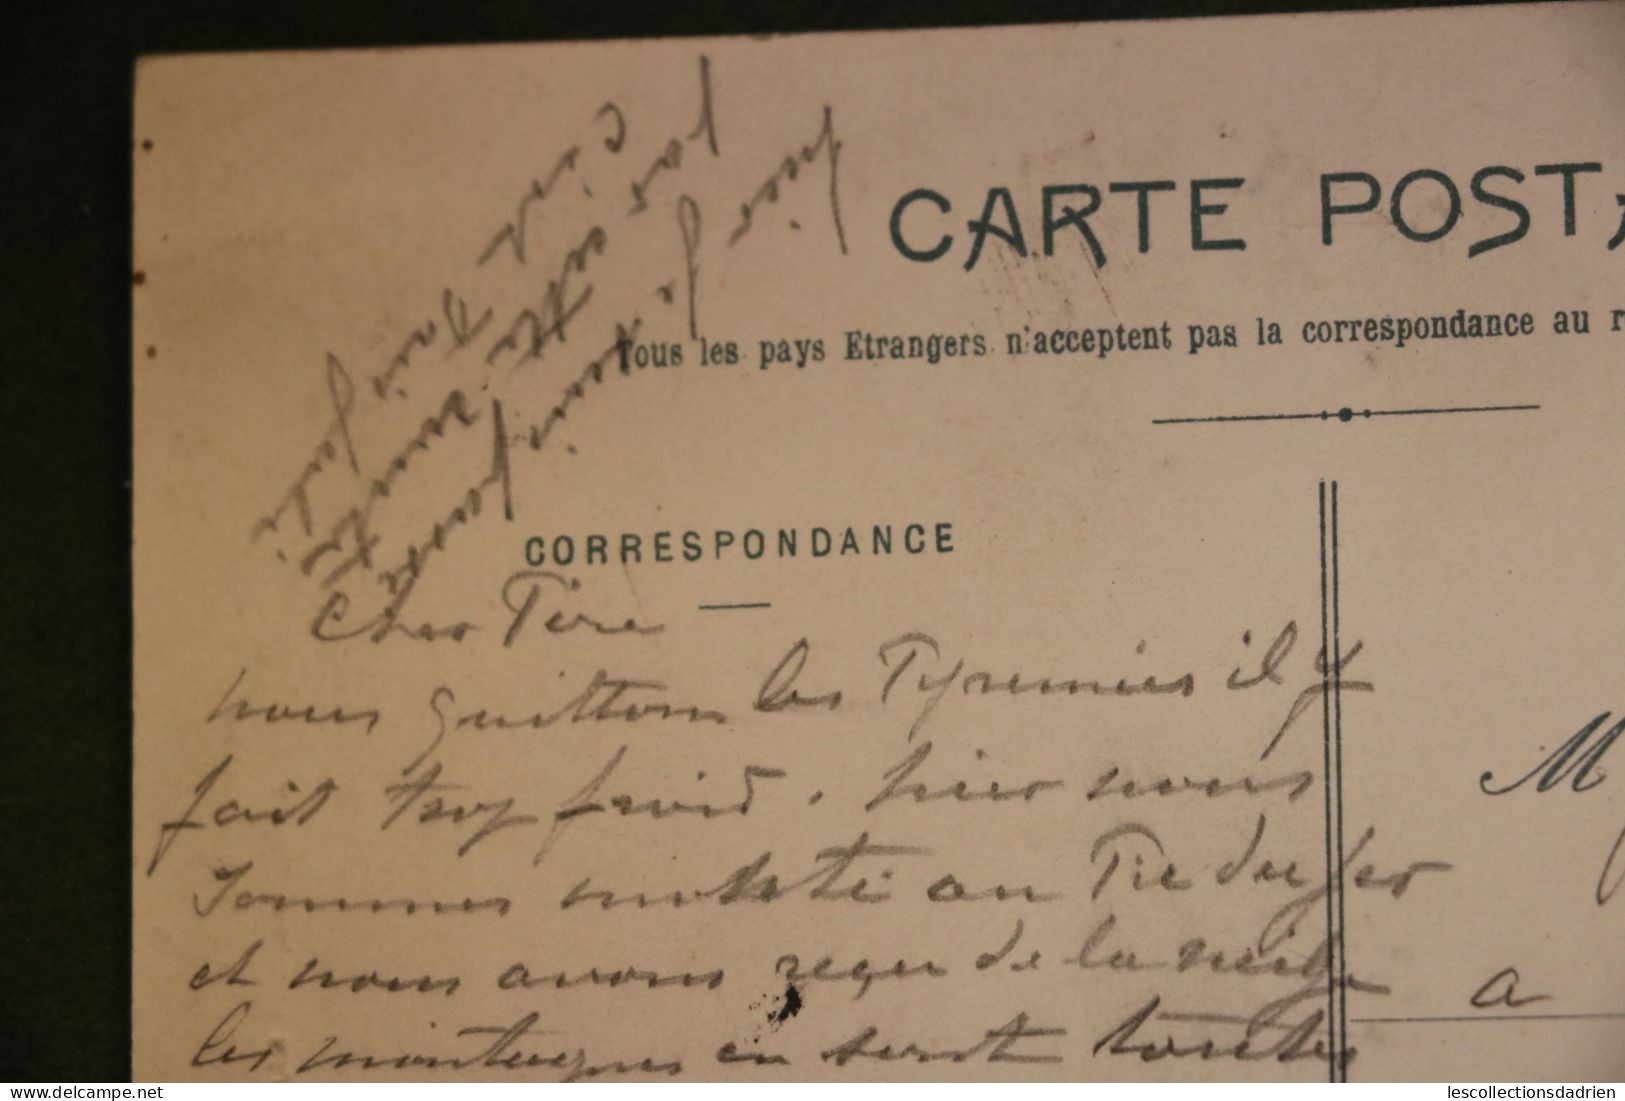 CARTE POSTA
Tous les pays Etrangers n'acceptent pas la correspondance au r
CORRESPONDANCE
Cher Père
nous quittons les Pyrennées il y
fait trop froid. hier nous
sommes monté au Pic du Jer
et nous avons reçu de la neige
les montagnes en sont toutes
M
a
lescollectionsdadrien